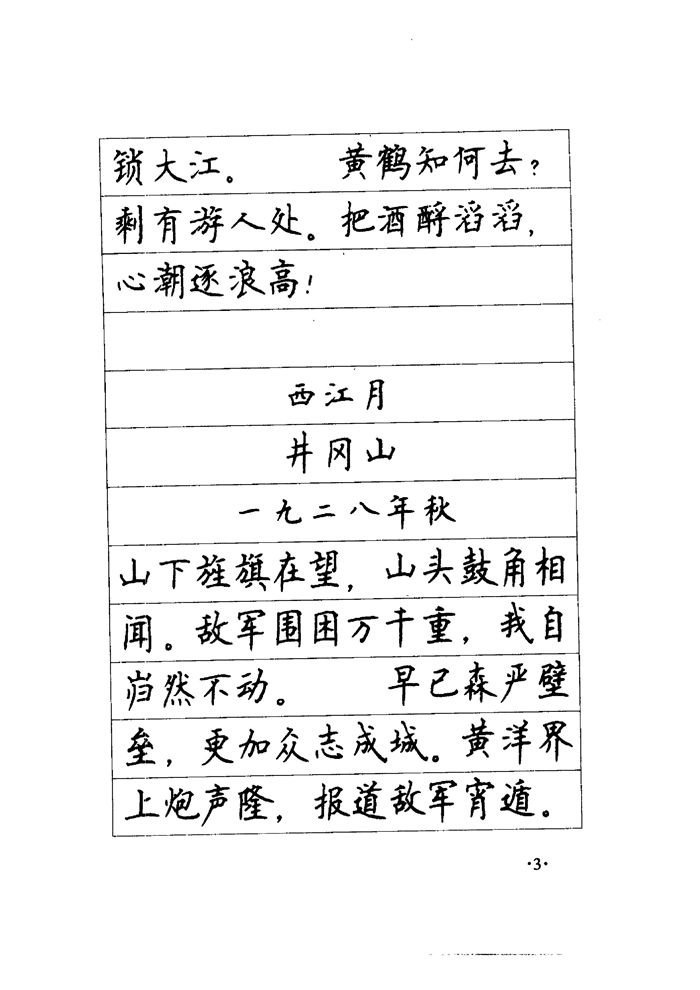 锁大江。　　黄鹤知何去？
剩有游人处。把酒酹滔滔，
心潮逐浪高！
西江月
井冈山
一九二八年秋
山下旌旗在望，山头鼓角相
闻。敌军围困万千重，我自
岿然不动。　　早已森严壁
垒，更加众志成城。黄洋界
上炮声隆，报道敌军宵遁。
·3·